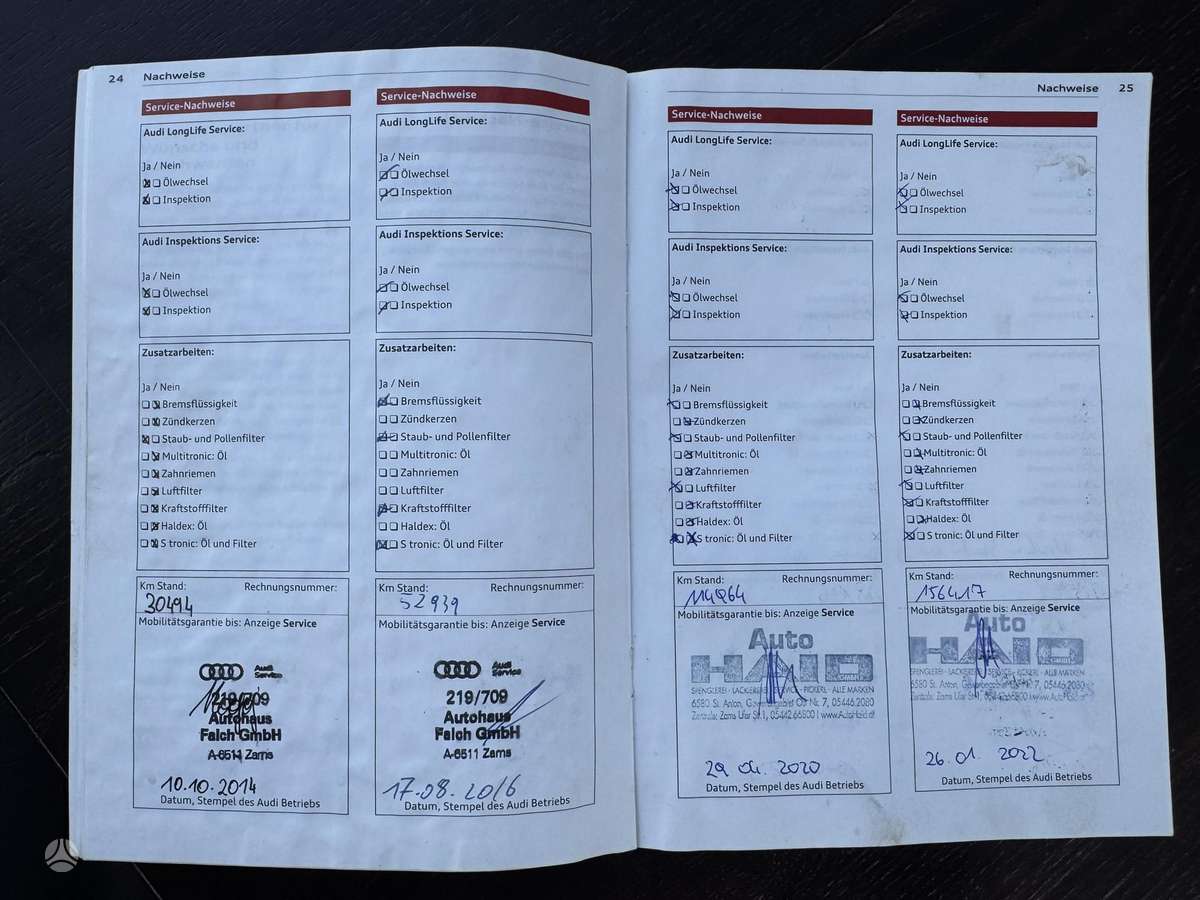 24 Nachweise
Service-Nachweise
Audi LongLife Service:
Ja / Nein
Ölwechsel
Inspektion
Audi Inspektions Service:
Ja / Nein
Ölwechsel
Inspektion
Zusatzarbeiten:
Ja / Nein
Bremsflüssigkeit
Zündkerzen
Staub- und Pollenfilter
Multitronic: Öl
Zahnriemen
Luftfilter
Kraftstofffilter
Haldex: Öl
S tronic: Öl und Filter
Km Stand: Rechnungsnummer:
30494
Mobilitätsgarantie bis: Anzeige Service
Audi
Service
219/709
Autohaus
Falch GmbH
A-6511 Zams
10.10.2014
Datum, Stempel des Audi Betriebs
Service-Nachweise
Audi LongLife Service:
Ja / Nein
Ölwechsel
Inspektion
Audi Inspektions Service:
Ja / Nein
Ölwechsel
Inspektion
Zusatzarbeiten:
Ja / Nein
Bremsflüssigkeit
Zündkerzen
Staub- und Pollenfilter
Multitronic: Öl
Zahnriemen
Luftfilter
Kraftstofffilter
Haldex: Öl
S tronic: Öl und Filter
Km Stand: Rechnungsnummer:
52939
Mobilitätsgarantie bis: Anzeige Service
Audi
Service
219/709
Autohaus
Falch GmbH
A-6511 Zams
17.08.2016
Datum, Stempel des Audi Betriebs
Nachweise 25
Service-Nachweise
Audi LongLife Service:
Ja / Nein
Ölwechsel
Inspektion
Audi Inspektions Service:
Ja / Nein
Ölwechsel
Inspektion
Zusatzarbeiten:
Ja / Nein
Bremsflüssigkeit
Zündkerzen
Staub- und Pollenfilter
Multitronic: Öl
Zahnriemen
Luftfilter
Kraftstofffilter
Haldex: Öl
S tronic: Öl und Filter
Km Stand: Rechnungsnummer:
Mobilitätsgarantie bis: Anzeige Service
Auto
HAID
GMBH
SPENGLEREI - LACKIEREREI - SERVICE - PICKERL - ALLE MARKEN
6580 St. Anton, Nr. 7, 05446.2080
Zentrale: Zams Ufer Str. 1, 05442.66800 | www.AutoHaid.at
29 04. 2020
Datum, Stempel des Audi Betriebs
Service-Nachweise
Audi LongLife Service:
Ja / Nein
Ölwechsel
Inspektion
Audi Inspektions Service:
Ja / Nein
Ölwechsel
Inspektion
Zusatzarbeiten:
Ja / Nein
Bremsflüssigkeit
Zündkerzen
Staub- und Pollenfilter
Multitronic: Öl
Zahnriemen
Luftfilter
Kraftstofffilter
Haldex: Öl
S tronic: Öl und Filter
Km Stand: Rechnungsnummer:
156417
Mobilitätsgarantie bis: Anzeige Service
Auto
HAID
GMBH
SPENGLEREI - LACKIEREREI - SERVICE - PICKERL - ALLE MARKEN
6580 St. Anton, Nr. 7, 05446.2080
Zentrale: Zams Ufer Str. 1, 05442.66800
26. 01. 2022
Datum, Stempel des Audi Betriebs